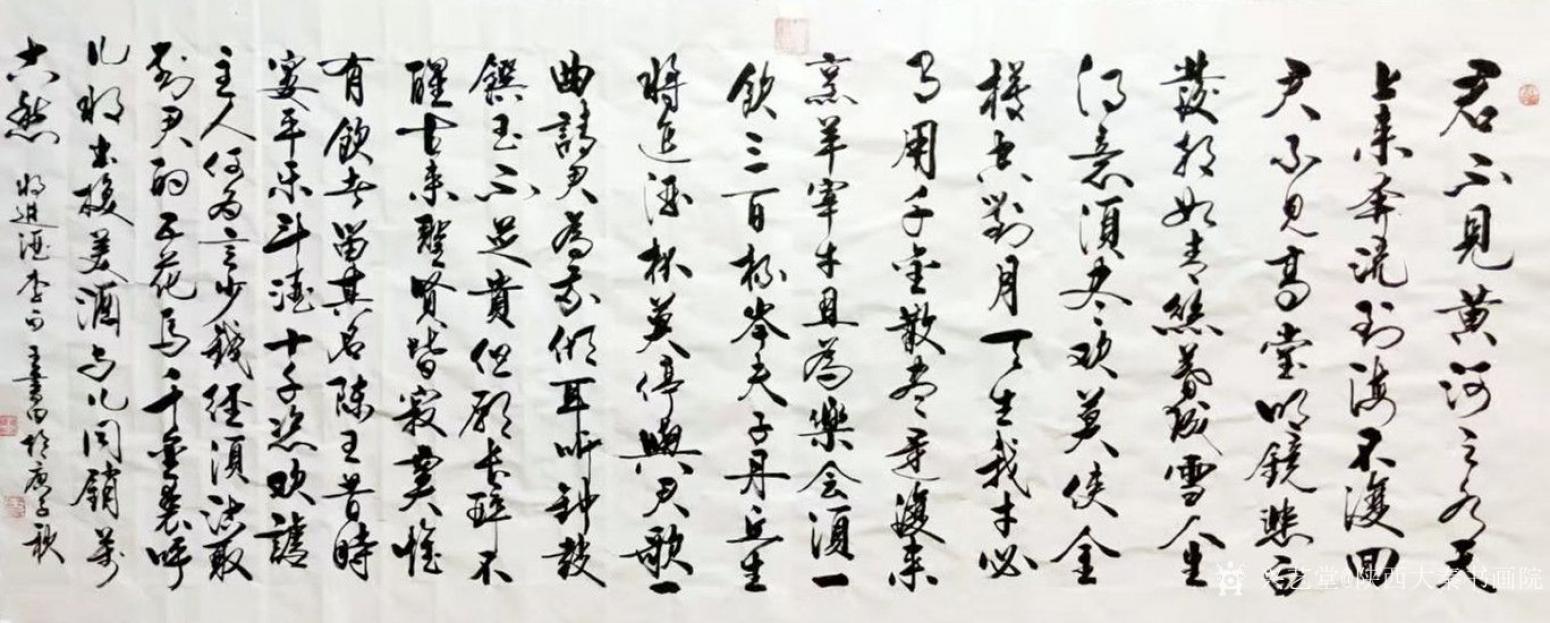 君不見黄河之水天
上来奔流到海不復回
君不見高堂明鏡悲白
發朝如青絲暮成雪人生
得意須尽欢莫使金
樽空對月天生我才必
有用千金散尽還復来
烹羊宰牛且為樂会須一
飲三百杯岑夫子丹丘生
將进酒杯莫停與君歌一
曲請君為我側耳听钟鼓
饌玉不足貴但願長醉不
醒古来聖賢皆寂寞惟
有飲者留其名陳王昔時
宴平乐斗酒十千恣欢謔
主人何為言少錢径須沽取
對君酌五花馬千金裘呼
儿將出換美酒与儿同銷萬
古愁
將进酒李白 於庚子秋
艺堂@陕西大秦书画院